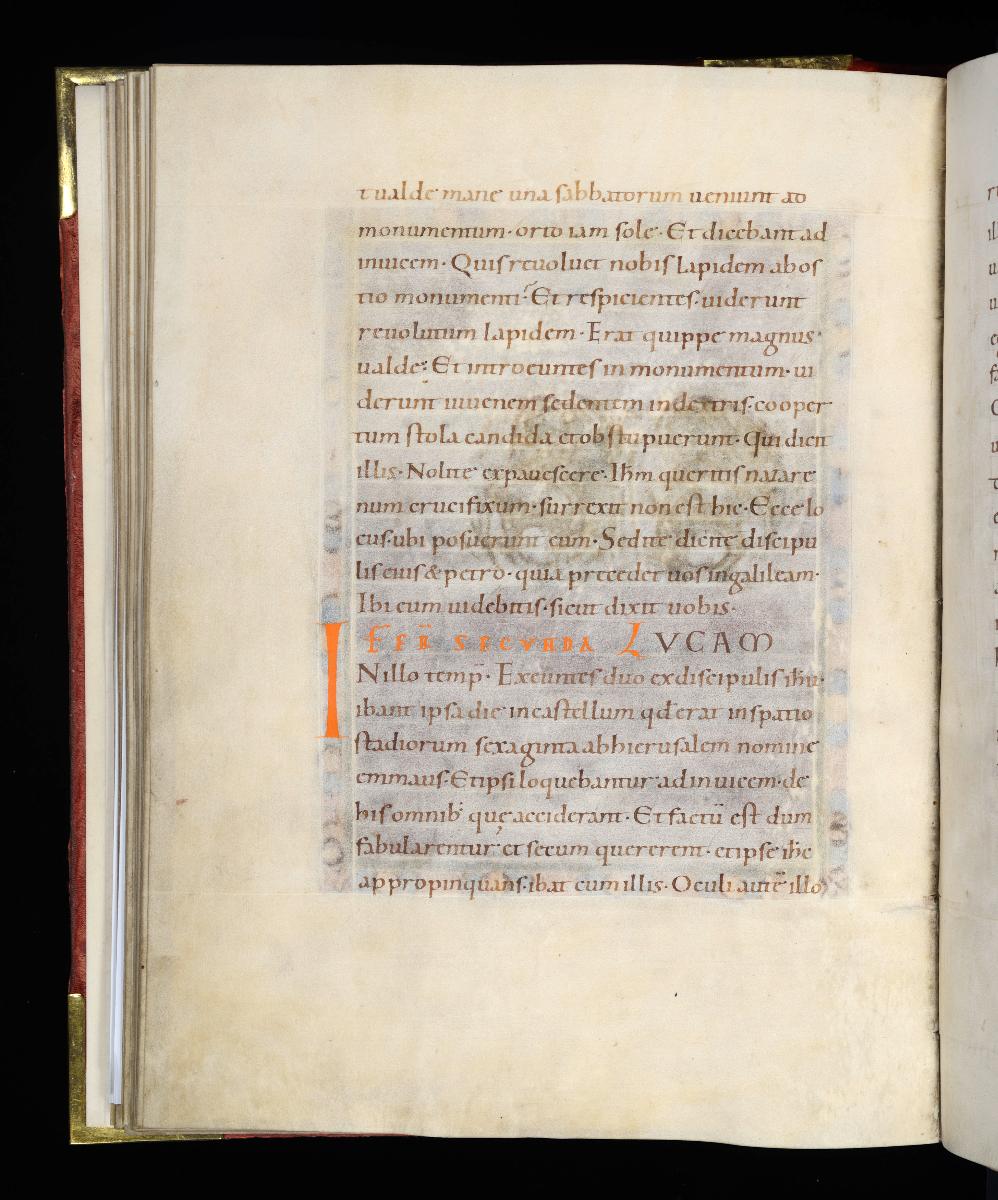 t ualde mane una sabbatorum ueniunt ad
monumentum· orto iam sole· Et dicebant ad
inuicem· Quis reuoluet nobis lapidem ab os
tio monumenti· Et respicientes· uiderunt
reuolutum lapidem· Erat quippe magnus
ualde· Et introeuntes in monumentum· ui
derunt iuuenem sedentem in dextris· cooper
tum stola candida et obstupuerunt· Qui dicit
illis· Nolite expauescere· Ihm queritis nazare
num crucifixum· surrexit non est hic· Ecce lo
cus· ubi posuerunt eum· Sed ite dicite discipu
lis eius & petro· quia precedet uos in galileam·
Ibi eum uidebitis· sicut dixit uobis·
FER̄ SECVNDA LVCAM
INillo temp̄· Exeuntes duo ex discipulis ihu·
ibant ipsa die in castellum qđ erat in spatio
stadiorum sexaginta ab hierusalem nomine
emmaus· Et ipsi loquebantur ad inuicem· de
his omnib· quę acciderant· Et factū est dum
fabularentur· et secum quererent· et ipse ihc
appropinquans· ibat cum illis· Oculi autē illo